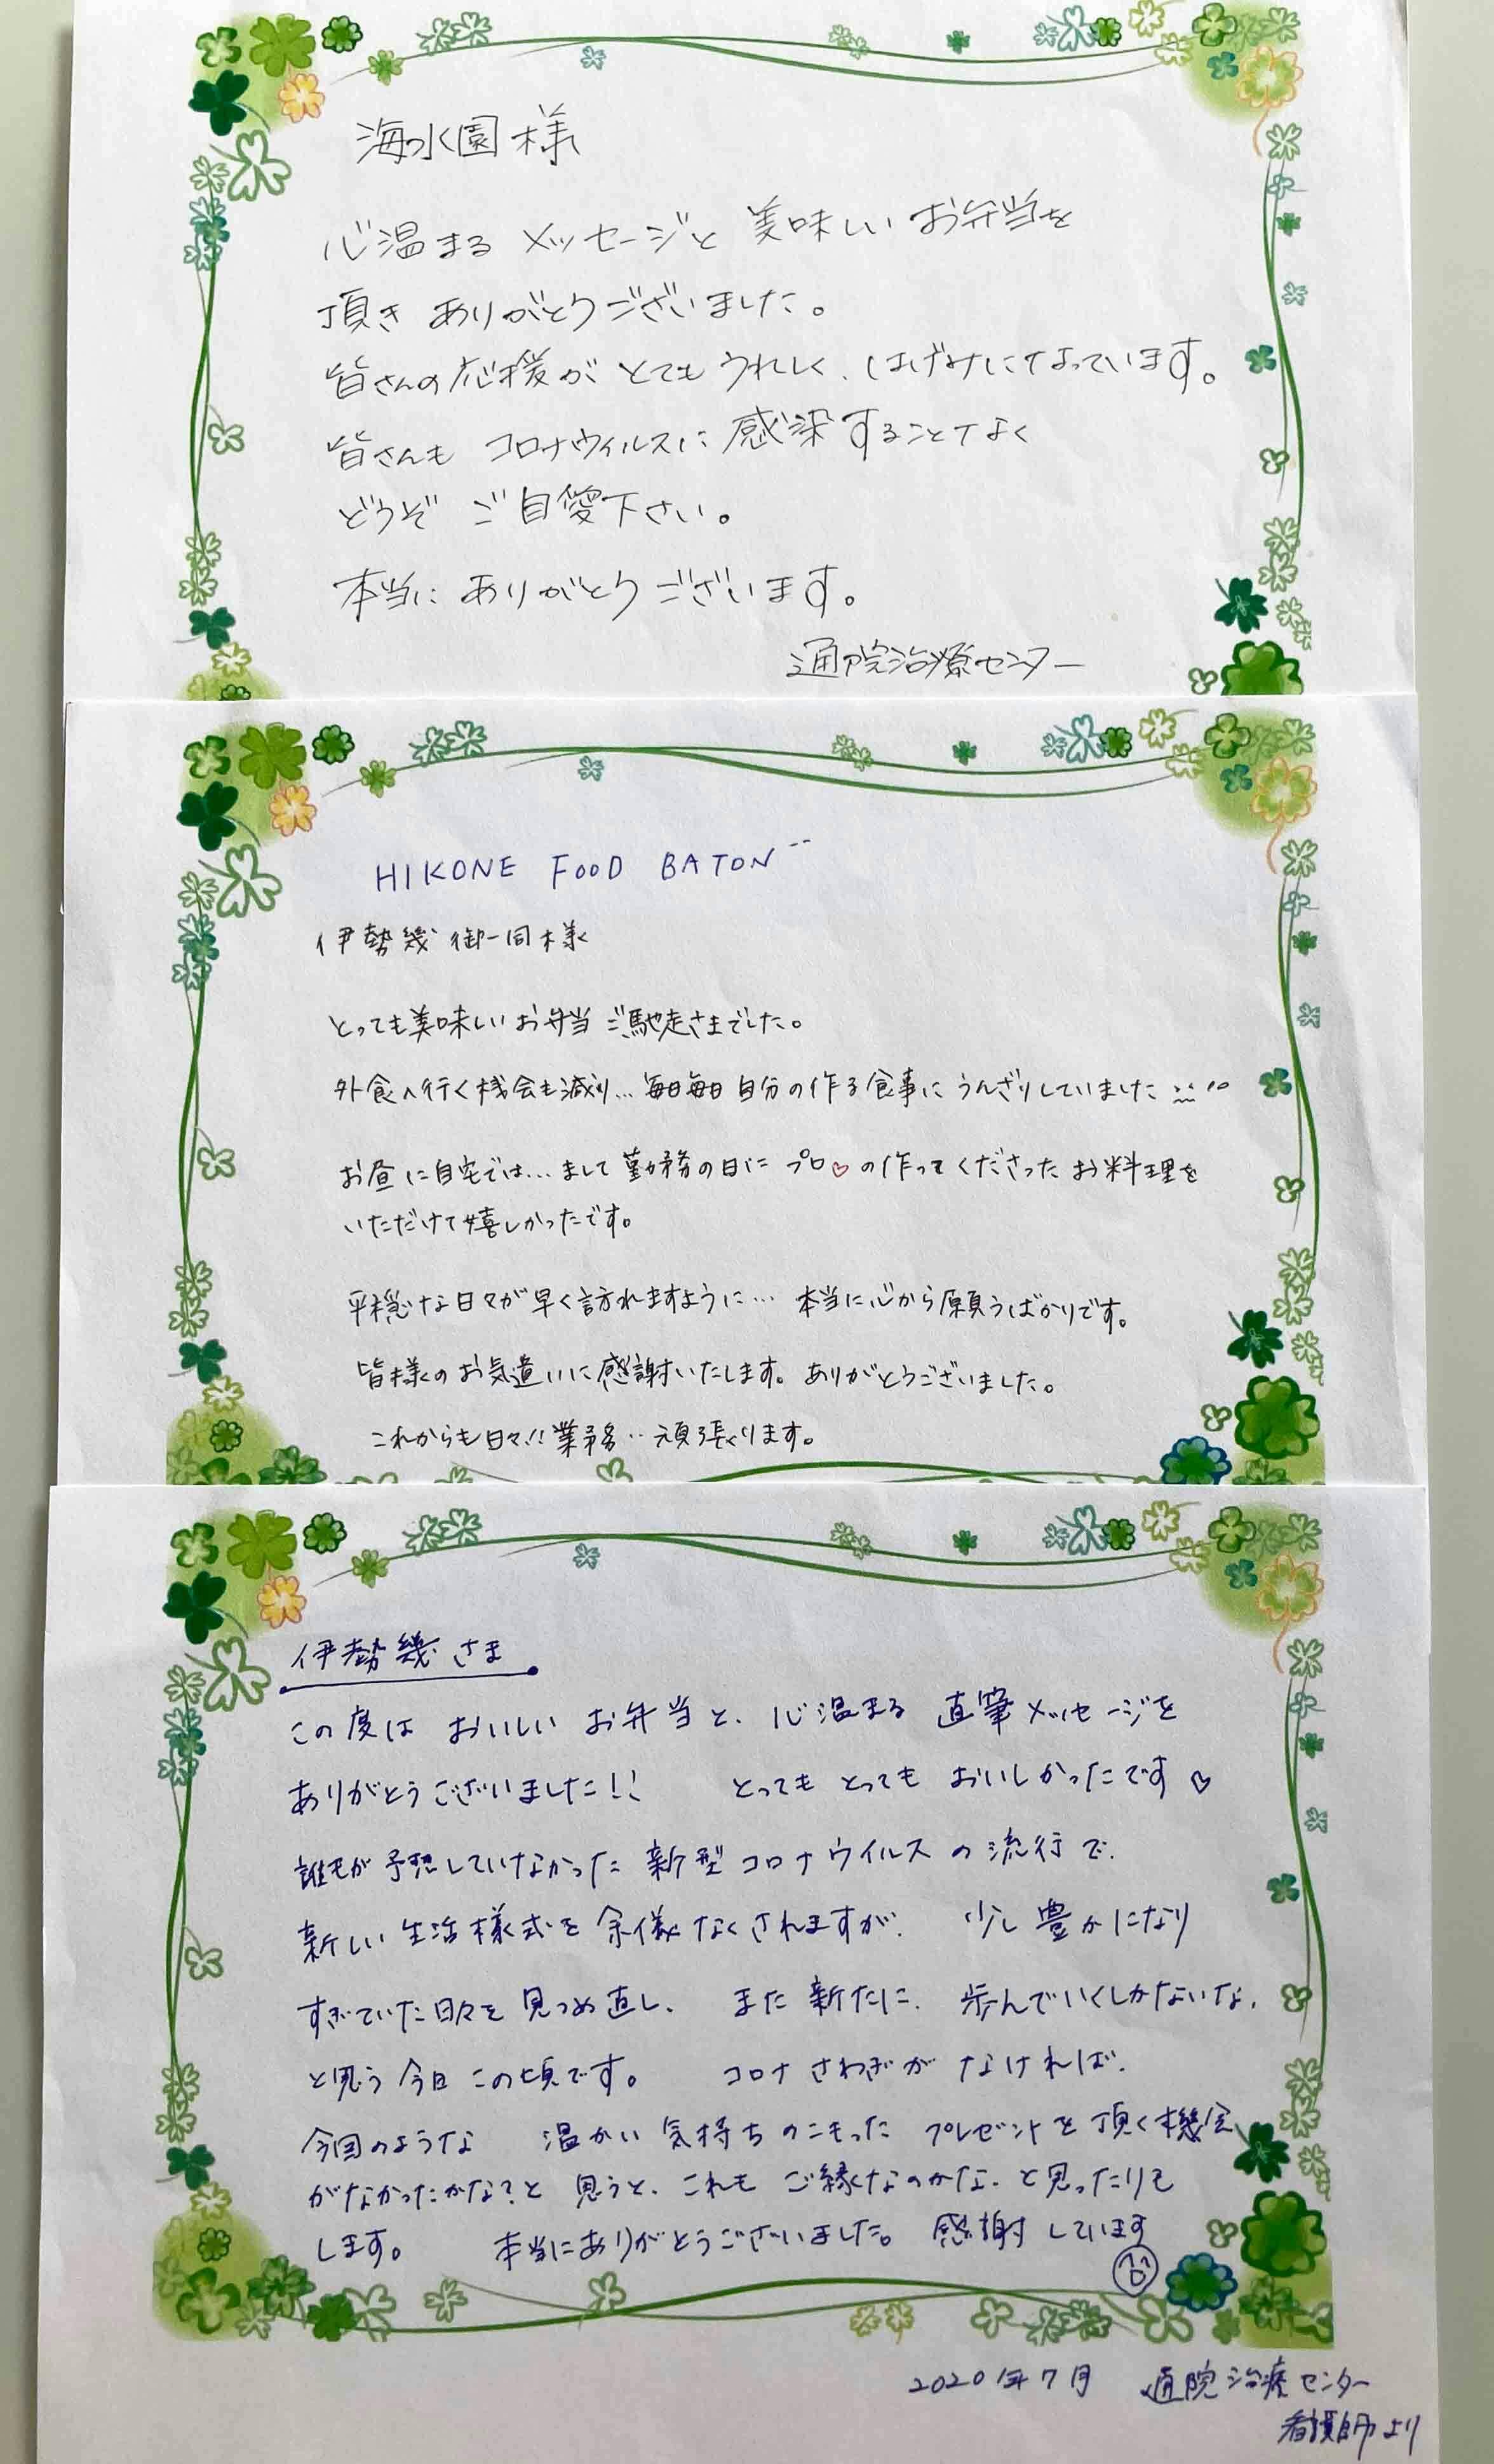 海水園様
心温まる メッセージと 美味しいお弁当を
頂き ありがとうございました。
皆さんの応援が とても うれしく、はげみになっています。
皆さんも コロナウィルスに 感染することなく
どうぞ ご自愛下さい。
本当に ありがとうございます。
通院治療センター
HIKONE FOOD BATON
伊勢幾 御一同様
とっても美味しいお弁当 ご馳走さまでした。
外食へ行く機会も減り… 毎日毎日 自分の作る食事に うんざりしていました
お昼に自宅では… まして 勤務の日に プロ♡の作ってくださった お料理を
いただけて嬉しかったです。
平穏な日々が早く訪れますように… 本当に心から願うばかりです。
皆様のお気遣いに感謝いたします。ありがとうございました。
これからも日々!! 業務‥頑張ります。
伊勢幾さま
この度は おいしい お弁当と、心温まる 直筆メッセージを
ありがとうございました!! とっても とっても おいしかったです♡
誰もが予想していなかった 新型コロナウイルスの流行で、
新しい生活様式を余儀なくされますが、 少し豊かになり
すぎていた日々を見つめ直し、 また新たに、歩んでいくしかないな、
と思う今日この頃です。 コロナさわぎが なければ、
今回のような 温かい気持ちのこもった プレゼントを頂く機会
がなかったかな?と思うと、これも ご縁なのかな、と思ったりも
します。 本当にありがとうございました。感謝しています
2020年7月 通院治療センター
看護師より